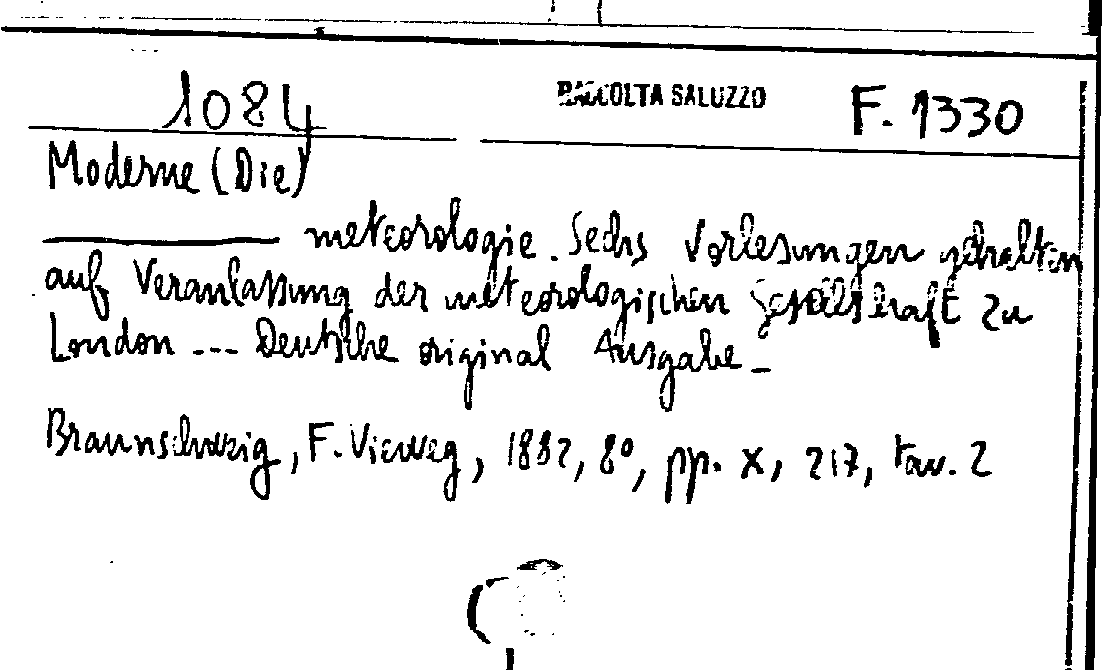 1084 RACCOLTA SALUZZO F. 1330
Moderne (Die)
——— meteorologie. Sechs Vorlesungen gehalten
auf Veranlassung der meteorologischen Gesellschaft zu
London --- Deutsche original Ausgabe_
Braunschweig, F. Vieweg, 1882, 8°, pp. X, 217, tav. 2